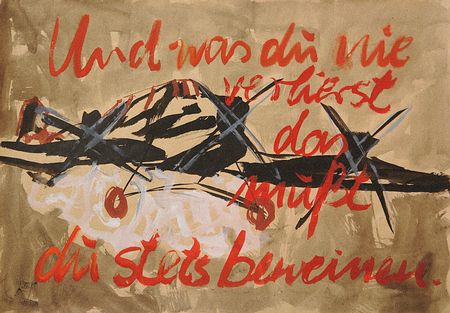 Und was du nie
verlierst
das
mußt
du stets beweinen.